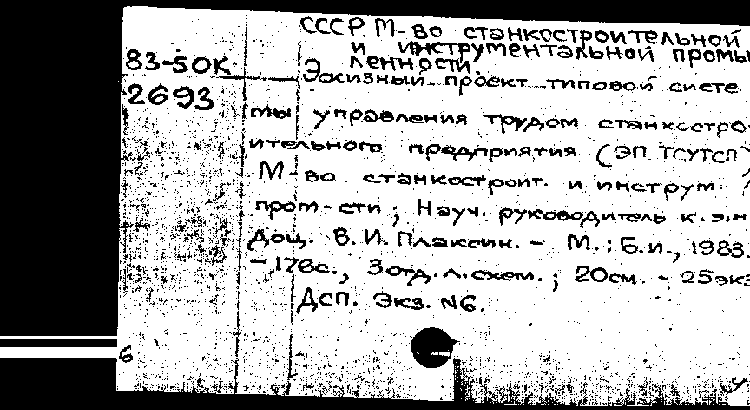 СССР М-во станкостроительной
и инструментальной промы
ленности.
83-50К
Эскизный проект типовой систе
2693
мы управления трудом станкостро
ительного предприятия (ЭП ТСУТСП
М-во станкостроит. и инструм.
пром-сти; Науч. руководитель к.э.н
доц. В.И. Плаксин. - М.: Б.и., 1983.
-176с., 3 отд. л. схем.; 20см. - 25экз
Дсп. Экз. №6.
Б